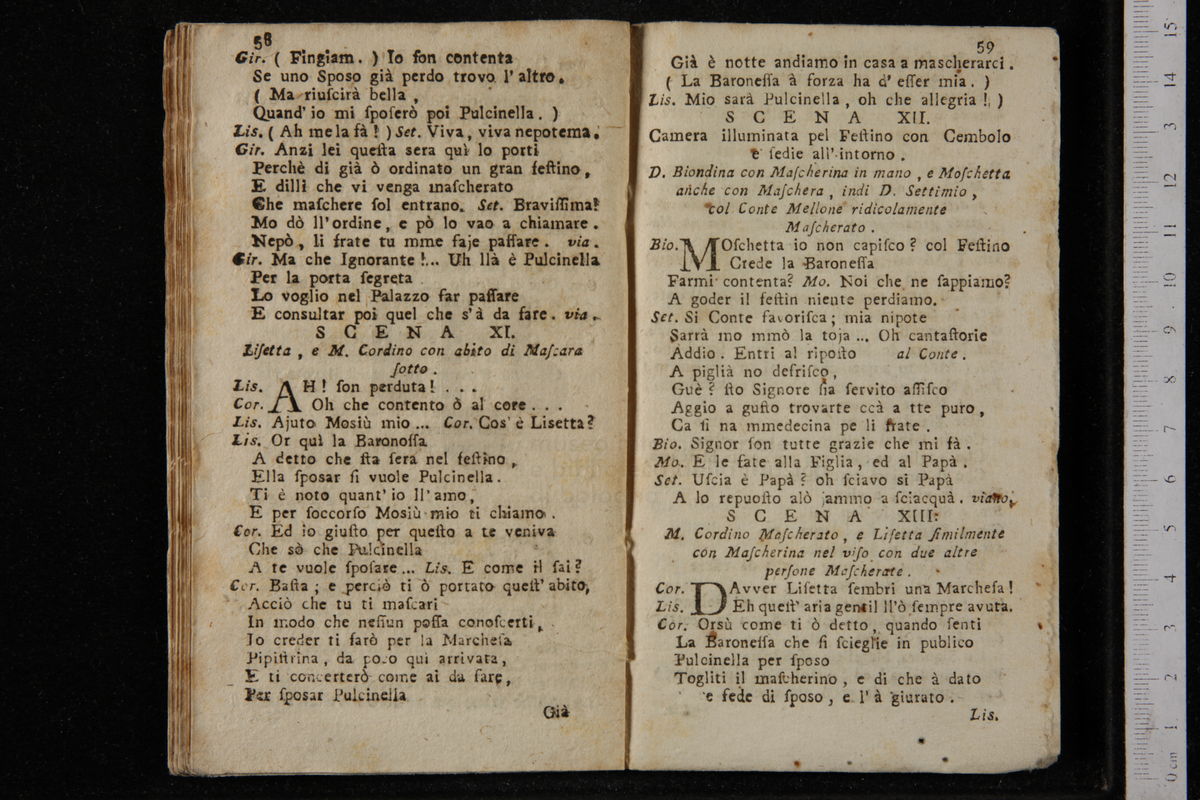 58
Gir. ( Fingiam. ) Io ſon contenta
Se uno Spoſo già perdo trovo l' altro.
( Ma riuſcirà bella ,
Quand' io mi ſpoſerò poi Pulcinella. )
Lis. ( Ah me la fà ! ) Set. Viva, viva nepotema.
Gir. Anzi lei queſta sera quì lo porti
Perchè di già ò ordinato un gran feſtino,
E dilli che vi venga maſcherato
Che maſchere ſol entrano. Set. Braviſſima!
Mo dò ll'ordine, e pò lo vao a chiamare.
Nepò, li frate tu mme faje paſſare. via.
Gir. Ma che Ignorante!... Uh llà è Pulcinella
Per la porta ſegreta
Lo voglio nel Palazzo far paſſare
E consultar poi quel che s'à da fare. via.
S C E N A XI.
Liſetta, e M. Cordino con abito di Maſcara
ſotto.
Lis. AH! ſon perduta! . . .
Cor. Oh che contento ò al core . . .
Lis. Ajuto Mosiù mio ... Cor. Cos' è Lisetta?
Lis. Or quì la Baroneſſa
A detto che ſta ſera nel feſtino,
Ella ſposar ſi vuole Pulcinella.
Ti è noto quant' io ll' amo,
E per ſoccorſo Mosiù mio ti chiamo.
Cor. Ed io giuſto per queſto a te veniva
Che sò che Pulcinella
A te vuole ſpoſare ... Lis. E come il ſai?
Cor. Baſta ; e perciò ti ò portato queſt' abito,
Acciò che tu ti maſcari
In modo che neſſun poſſa conoſcerti,
Io creder ti farò per la Marcheſa
Pipiſtrina, da poco qui arrivata,
E ti concerterò come ai da fare,
Per ſposar Pulcinella
Già
59
Già è notte andiamo in casa a mascherarci.
( La Baroneſſa à forza ha d' eſſer mia. )
Lis. Mio sarà Pulcinella, oh che allegria ! )
S C E N A XII.
Camera illuminata pel Feſtino con Cembolo
e ſedie all' intorno.
D. Biondina con Maſcherina in mano, e Moſchetta
anche con Maſchera, indi D. Settimio,
col Conte Mellone ridicolamente
Maſcherato.
Bio. MOſchetta io non capiſco ? col Feſtino
Crede la Baroneſſa
Farmi contenta? Mo. Noi che ne ſappiamo?
A goder il feſtin niente perdiamo.
Set. Si Conte favoriſca ; mia nipote
Sarrà mo mmò la toja ... Oh cantaſtorie
Addio. Entri al ripoſto al Conte.
A piglià no defriſco,
Guè ? ſto Signore ſia ſervito aſſiſco
Aggio a guſto trovarte ccà a tte puro,
Ca ſi na mmedecina pe li frate.
Bio. Signor ſon tutte grazie che mi fà.
Mo. E le fate alla Figlia, ed al Papà.
Set. Uſcia è Papà ? oh ſciavo si Papà
A lo repuoſto alò jammo a ſciacquà. viano,
S C E N A XIII.
M. Cordino Maſcherato, e Liſetta ſimilmente
con Maſcherina nel viſo con due altre
perſone Maſcherate.
Cor. DAvver Liſetta ſembri una Marcheſa !
Lis. Eh queſt' aria gentil ll'ò ſempre avuta.
Cor. Orsù come ti ò detto, quando ſenti
La Baroneſſa che ſi ſcieglie in publico
Pulcinella per ſposo
Togliti il maſcherino, e di che à dato
e fede di ſposo, e l' à giurato.
Lis.
15
14
13
12
11
10
9
8
7
6
5
4
3
2
1
0 cm